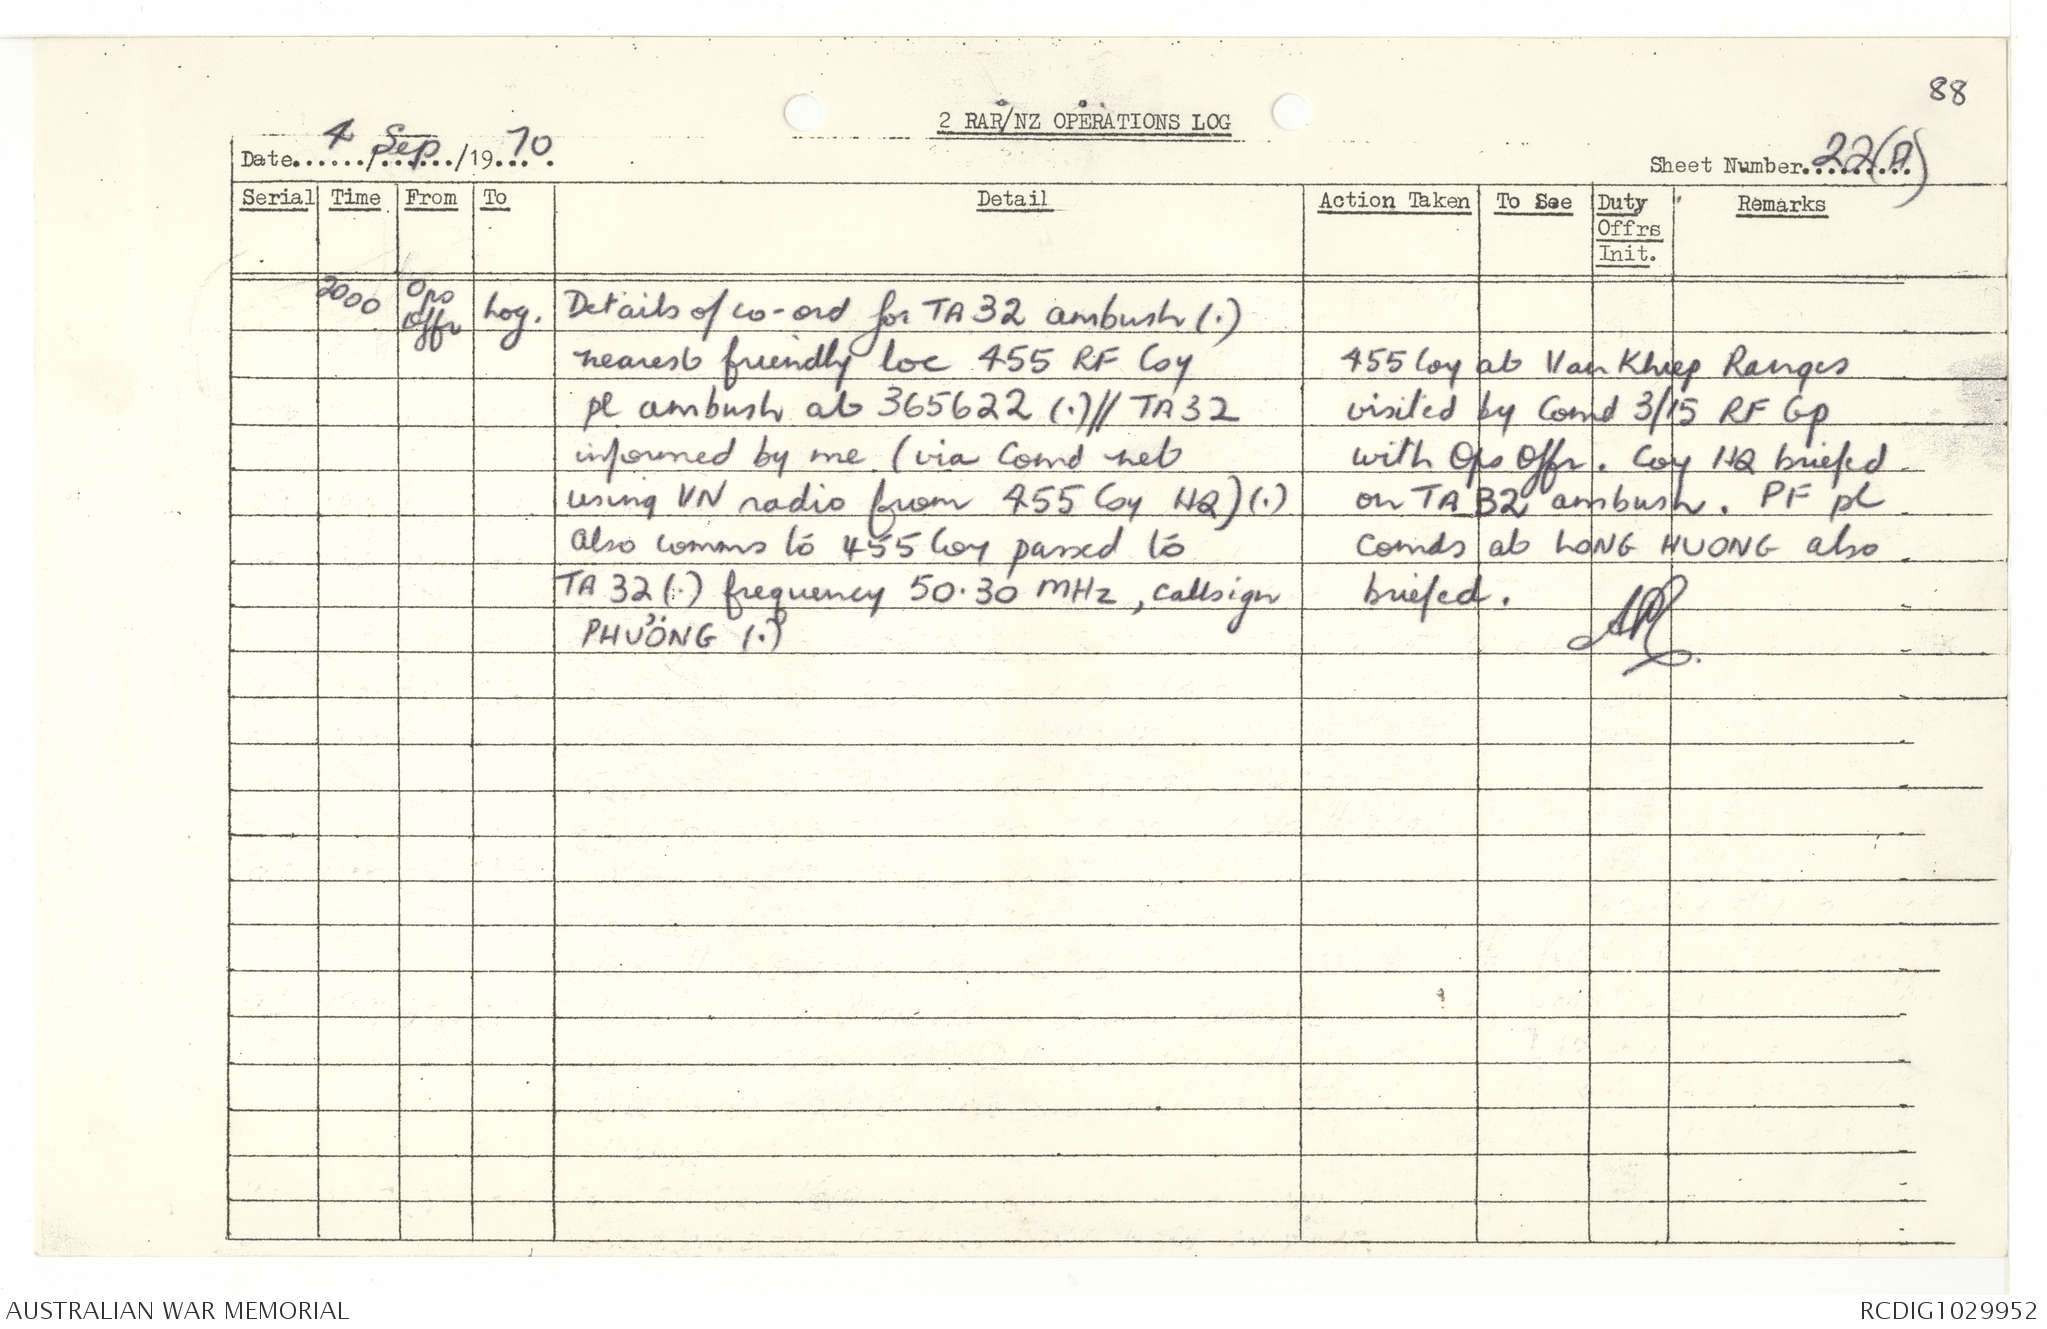 88
2 RAR/NZ OPERATIONS LOG
Date 4 / Sep /19 70
Sheet Number 22(A)
Serial Time From To Detail Action Taken To See Duty Offrs Init. Remarks
2000 Ops Offr Log. Details of co-ord for TA 32 ambush (.)
nearest friendly loc 455 RF Coy 455 Coy at Van Khiep Ranges
pl ambush at 365622 (.)// TA 32 visited by Comd 3/15 RF Gp
informed by me (via Comd net with Ops Offr. Coy HQ briefed
using VN radio from 455 Coy HQ) (.) on TA 32 ambush. PF pl
Also comms to 455 Coy passed to comds at LONG HUONG also
TA 32 (.) frequency 50.30 MHz, callsign briefed.
PHƯỜNG (.)
AUSTRALIAN WAR MEMORIAL
RCDIG1029952